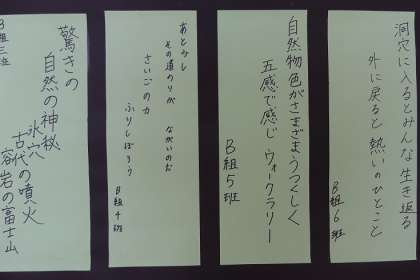 洞穴に入るとみんな生き返る
外に戻ると熱いのひとこと
B組6班
自然物色がさまざまうつくしく
五感で感じウォークラリー
B組5班
あとみし
その道のりが ながいのだ
さいごの力
ふりしぼろう
B組4班
驚きの
自然の神秘
氷穴
古代の噴火
容岩の富士山
B組三班